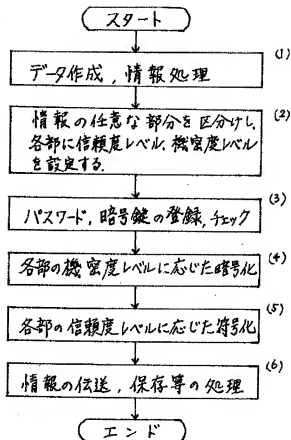 スタート
(1)
データ作成,情報処理
(2)
情報の任意な部分を区分けし,
各部に信頼度レベル,機密度レベル
を設定する.
(3)
パスワード,暗号鍵の登録,チェック
(4)
各部の機密度レベルに応じた暗号化
(5)
各部の信頼度レベルに応じた符号化
(6)
情報の伝送,保存等の処理
エンド